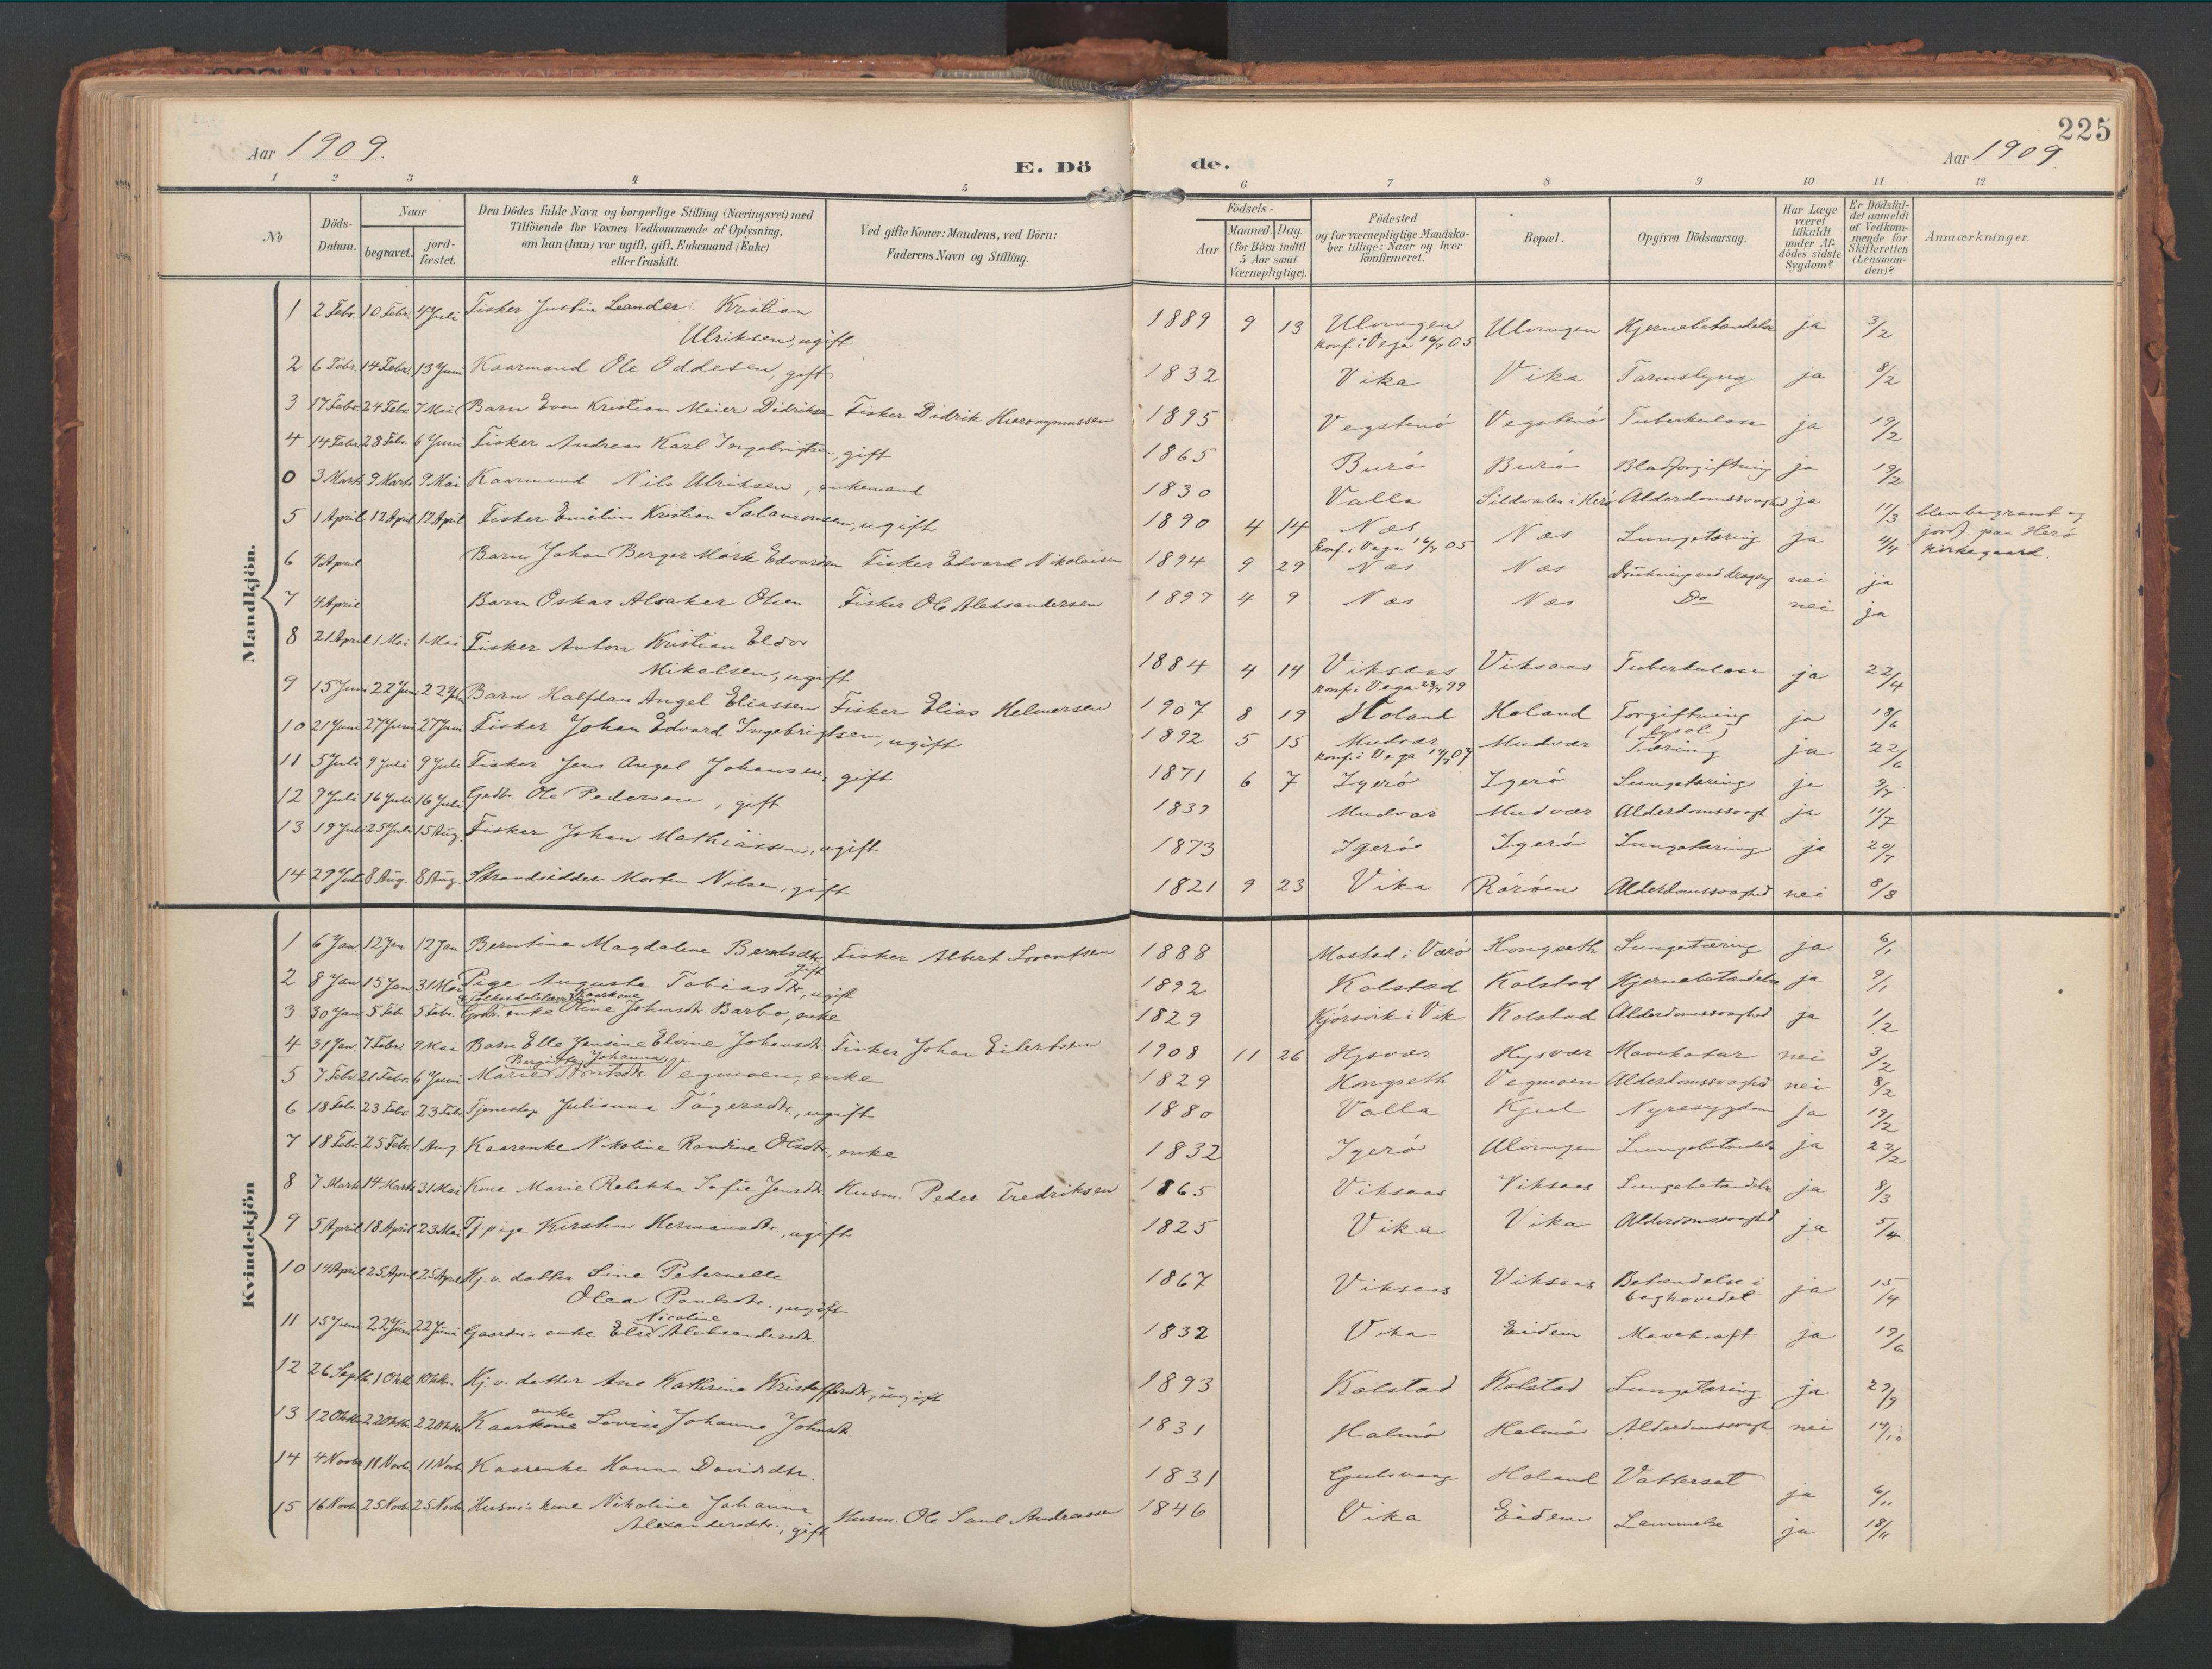 225
Aar 1909.
E. Dö de.
Aar 1909.
1 2 3 4 5 6 7 8 9 10 11 12
No
Döds-Datum.
Naar
begravet.
jord-fæstet.
Den Dödes fulde Navn og borgerlige Stilling (Næringsvei) med
Tilföiende for Voxnes Vedkommende af Oplysning,
om han (hun) var ugift, gift, Enkemand (Enke)
eller fraskilt.
Ved gifte Koner: Mandens, ved Börn:
Faderens Navn og Stilling.
Födsels-
Aar
Maaned. Dag.
(for Börn indtil
5 Aar samt
Værnepligtige).
Födested
og for værnepligtige Mandska-
ber tillige: Naar og hvor
konfirmeret.
Bopæl.
Opgiven Dödsaarsag.
Har Læge
været
tilkaldt
under Af-
dödes sidste
Sygdom?
Er Dödsfal-
det anmeldt
af Vedkom-
mende for
Skifteretten
(Lensman-
den)?
Anmærkninger.
Mandkjön.
1 2 Febr. 10 Febr. 4 Juli Fisker Justin Leander Kristian
Ulriksen, ugift 1889 9 13 Ulvingen Ulvingen Hjernebetændelse ja 3/2
konf. i Vega 16/7 05
2 6 Febr. 14 Febr. 13 Juni Kaarmand Ole Oddesen, gift 1832 Vika Vika Tarmslyng ja 8/2
3 17 Febr. 24 Febr. 7 Mai Barn Even Kristian Meier Didriksen Fisker Didrik Hieronymussen 1895 Vegstenö Vegstenö Tuberkulose ja 19/2
4 14 Febr. 28 Febr. 6 Juni Fisker Andreas Karl Ingebrigtsen, gift 1865 Burö Burö Blodforgiftning ja 19/2
0 3 Marts 9 Marts 9 Mai Kaarmand Nils Ulriksen, enkemand 1830 Valla Sildvalen i Herö Alderdomssvaghed ja 11/3 blev begravet og
jordf. paa Herö
kirkegaard.
5 1 April 12 April 12 April Fisker Emelius Kristian Salamonsen, ugift 1890 4 14 Næs Næs Lungetæring ja 4/4
konf. i Vega 16/7 05
6 4 April Barn Johan Berger Mörk Edvardsen Fisker Edvard Nikolaisen 1894 9 29 Næs Næs Drukning ved nei ja
7 4 April Barn Oskar Alsaker Olsen Fisker Ole Aleksandersen 1897 4 9 Næs Næs Do nei ja
8 21 April 1 Mai 1 Mai Fisker Anton Kristian Eldor
Mikalsen, ugift 1884 4 14 Viksaas Viksaas Tuberkulose ja 22/4
konf. i Vega 23/7 99
9 15 Juni 22 Juni 22 Juni Barn Halfdan Angel Eliassen Fisker Elias Helmersen 1907 8 19 Holand Holand Forgiftning ja 18/6
(lysol)
10 21 Juni 27 Juni 27 Juni Fisker Johan Edvard Ingebrigtsen, ugift 1892 5 15 Mudvær Mudvær Tæring ja 22/6
konf. i Vega 14/7 07
11 5 Juli 9 Juli 9 Juli Fisker Jens Angel Johansen, gift 1871 6 7 Igerö Igerö Lungetæring ja 9/7
12 9 Juli 16 Juli 16 Juli Gadbr. Ole Pedersen, gift 1839 Mudvær Mudvær Alderdomssvagh. ja 11/7
13 19 Juli 25 Juli 15 Aug. Fisker Johan Mathiassen, ugift 1873 Igerö Igerö Lungetæring ja 20/7
14 29 Juli 8 Aug. 8 Aug. Strandsidder Morten Nilsen, gift 1821 9 23 Vika Röröen Alderdomssvaghed nei 8/8
Kvindekjön
1 6 Jan 12 Jan 12 Jan Berntine Magdalene Berntsdtr. Fisker Albert Lorentsen 1888 Mostad i Værö Hongseth Lungetæring ja 6/1
gift
2 8 Jan 15 Jan 31 Mai Pige Augusta Tobiasdtr., ugift 1892 Kolstad Kolstad Hjernebetændelse ja 9/1
3 30 Jan 5 Feb. 5 Febr. enke Oline Johnsdtr. Barbo, enke 1829 Kjörsvik i Vik Kolstad Alderdomssvaghed ja 1/2
4 31 Jan. 7 Febr. 9 Mai Barn Elle Jensine Elvine Johansdtr. Fisker Johan Eilertsen 1908 11 26 Hysvær Hysvær Mavekatar nei 3/2
Bergitte Johanna
5 7 Febr. 21 Febr. 6 Juni Marie Arntsdtr. Vegmoen, enke 1829 Hongseth Vegmoen Alderdomssvaghed nei 8/2
6 18 Feb. 23 Febr. 23 Feb. Tjenestep. Julianna Tögersdtr., ugift 1880 Valla Kjul Nyresygdom ja 19/2
7 18 Febr. 25 Febr. 1 Aug. Kaarenke Nikoline Randine Olsdtr., enke 1832 Igerö Ulvingen Lungebetændelse ja 22/2
8 7 Marts 14 Marts 31 Mai Kone Marie Rebekka Sofie Jensdtr. Husm. Peder Fredriksen 1865 Viksaas Viksaas Lungebetændelse ja 8/3
9 5 April 18 April 23 Mai Tj. pige Kirsten Hermansdtr., ugift 1825 Vika Vika Alderdomssvaghed ja 5/4
10 14 April 25 April 25 April Hj. v. datter Line Peternelle
Olea Paulsdtr., ugift 1867 Viksaas Viksaas Betændelse i
baghovedet ja 15/4
Nicoline
11 15 Juni 22 Juni 22 Juni Gaardm. enke Else Aleksandersdtr. 1832 Vika Eidem Mavekræft ja 19/6
12 26 Septb. 1 Oktb. 1 Oktb. Hj. v. datter Ane Kathrine Kristoffersdtr., ugift 1893 Kolstad Kolstad Lungetæring ja 29/9
enke
13 12 Oktb. 22 Oktb. 22 Oktb. Kaarkone Lovise Johanna Johnsdtr. 1831 Halmö Halmö Alderdomssvagh. nei 14/10
14 4 Novbr. 11 Novb. 11 Novb. Kaarenke Hanna Davidsdtr. 1831 Gulsvaag Holand Vattersot ja 6/11
15 16 Novb. 25 Novb. 25 Novb. Husm's kone Nikoline Johanna
Alexandersdtr., gift Husm. Ole Paul Andreassen 1846 Vika Eidem Lammelse ja 18/11